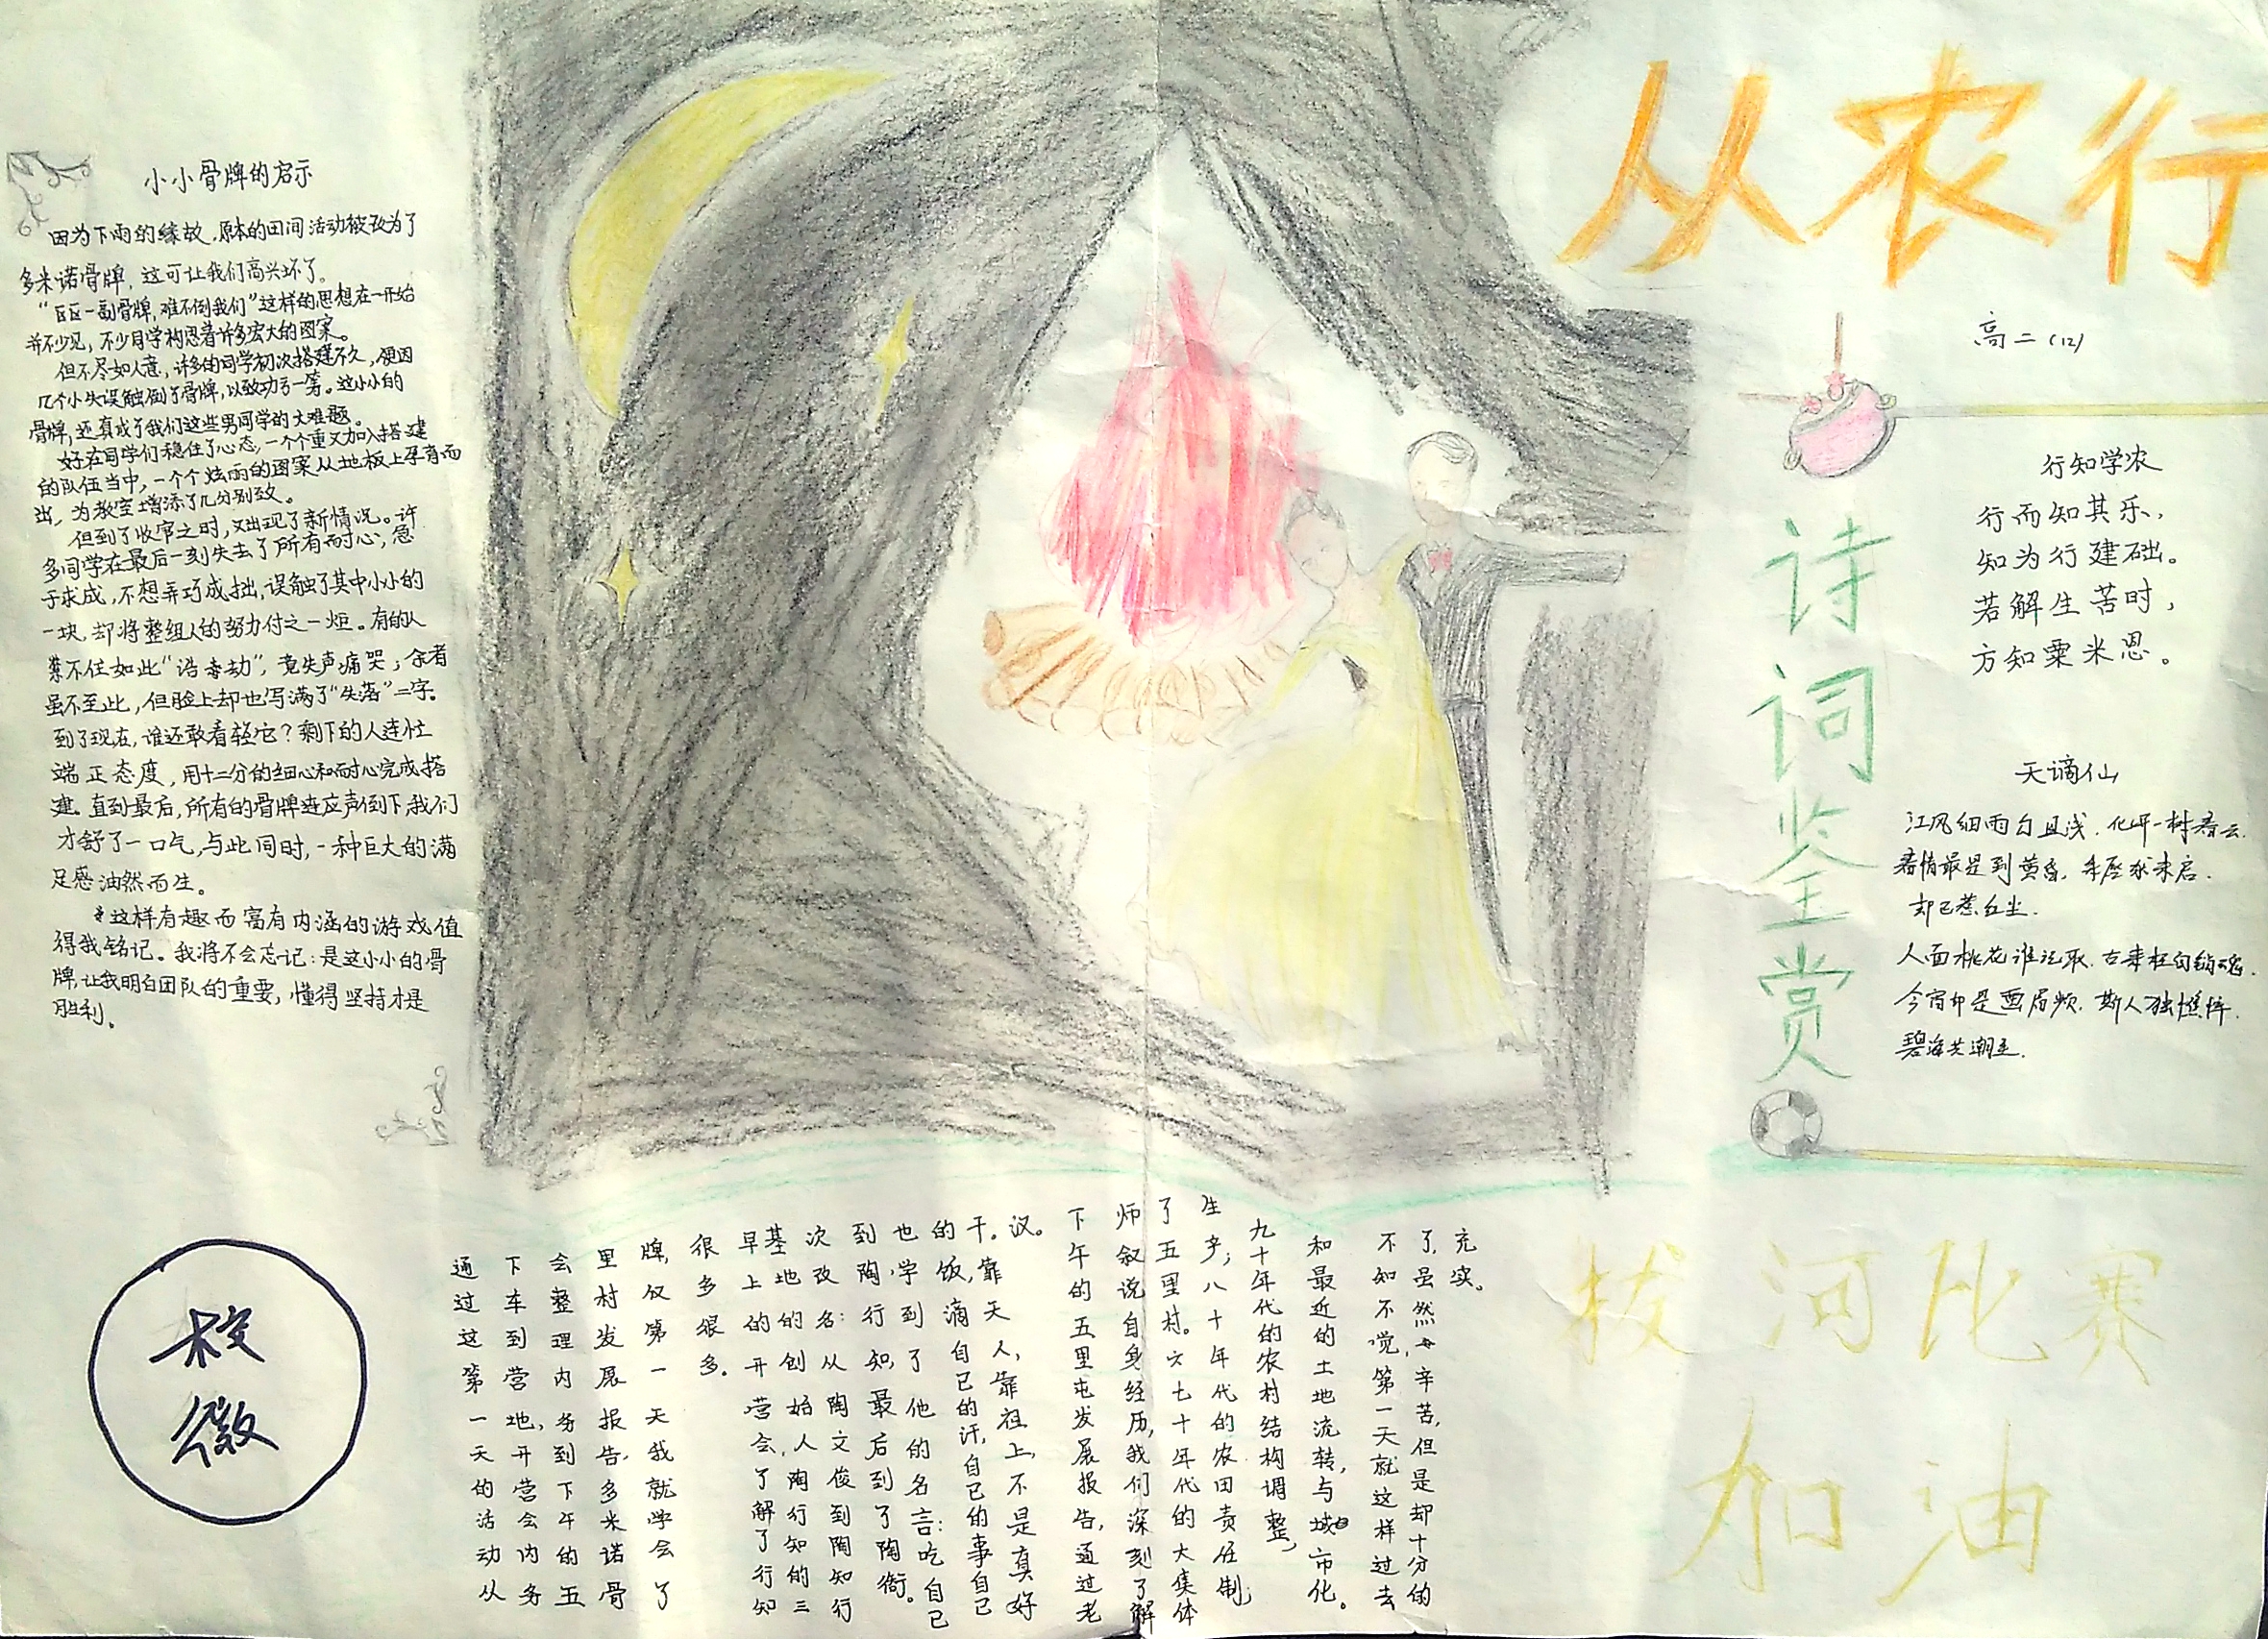 从农行
高二(12)
小小骨牌的启示
因为下雨的缘故,原本的田间活动被改为了
多米诺骨牌,这可让我们高兴坏了。
“区区一副骨牌,难不倒我们”这样的思想在一开始
并不少见,不少同学构思着许多宏大的图案。
但不尽如人意,许多的同学初次搭建不久,便因
几个小失误触倒了骨牌,以致功亏一篑。这小小的
骨牌,还真成了我们这些男同学的大难题。
好在同学们稳住了心态,一个个重又加入搭建
的队伍当中,一个个炫丽的图案从地板上孕育而
出,为教室增添了几分别致。
但到了收官之时,又出现了新情况。许
多同学在最后一刻失去了所有耐心,急
于求成,不想弄巧成拙,误触了其中小小的
一块,却将整组人的努力付之一炬。有的人
禁不住如此“浩劫”,竟失声痛哭;余者
虽不至此,但脸上却也写满了“失落”二字。
到了现在,谁还敢看轻它?剩下的人连忙
端正态度,用十二分的细心和耐心完成搭
建。直到最后,所有的骨牌连应声倒下,我们
才舒了一口气,与此同时,一种巨大的满
足感油然而生。
这样有趣而富有内涵的游戏值
得我铭记。我将不会忘记:是这小小的骨
牌,让我明白团队的重要,懂得坚持才是
胜利。
诗词鉴赏
行知学农
行而知其乐,
知为行建础。
若解生苦时,
方知粟米恩。
天谪仙
江风细雨白且浅.化坪一树春云.
春情最是到黄昏.未启.
却已惹红尘.
人面桃花谁记取.古来枉自销魂.
今宵却是画眉频.斯人独憔悴.
碧海共潮生.
校
徽
通过这第一天的活动从
下车到营地,开营会内务
会整理内务到下午的五
里村发展报告,多米诺骨
牌,仅第一天我就学会了
很多很多.
早上的开营会,了解了行知
基地的创始人陶行知的三
次改名:从陶文俊到陶知行
到陶行知,最后到了陶衙。
也学到了他的名言:吃自己
的饭,滴自己的汗,自己的事自己
干。靠天人,靠祖上,不是真好
汉。
下午的五里屯发展报告,通过老
师叙说自身经历,我们深刻了解
了五里村。六七十年代的大集体
生产;八十年代的农田责任制;
九十年代的农村结构调整,
和最近的土地流转,与城市化。
不知不觉,第一天就这样过去
了,虽然辛苦,但是却十分的
充实。
拔河比赛
加油